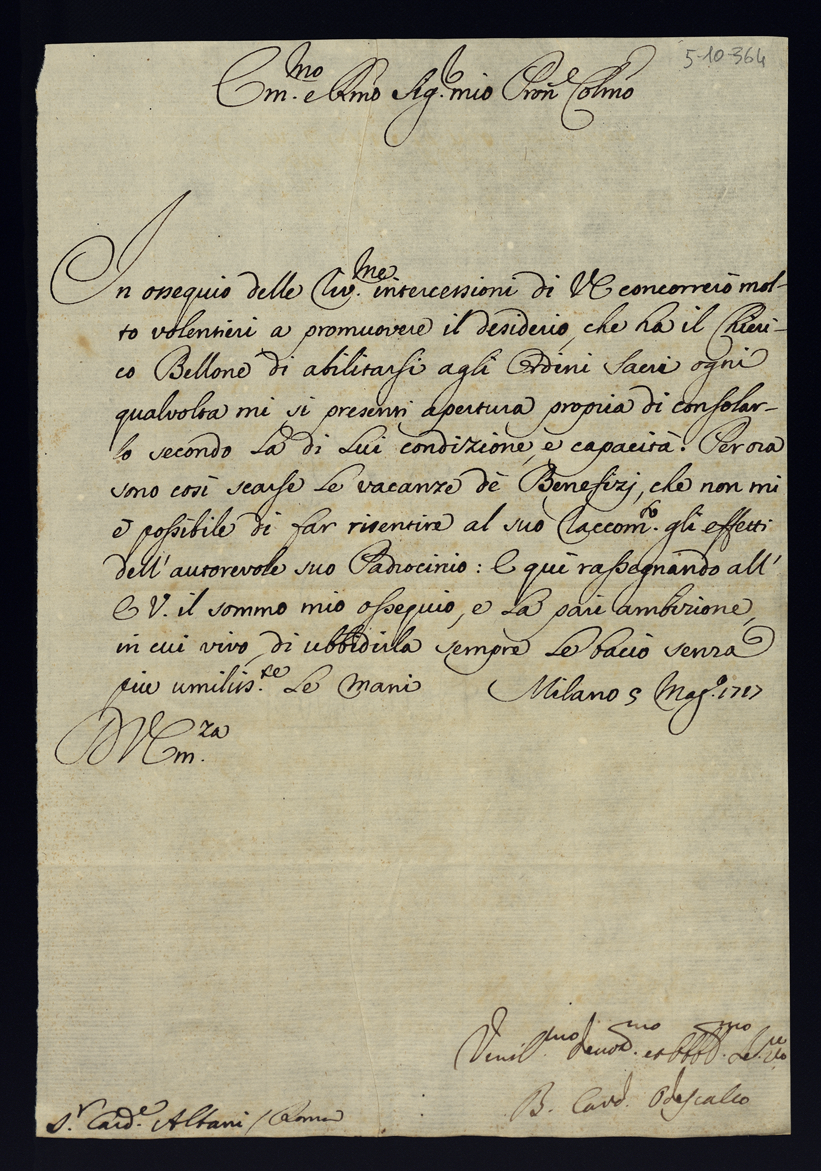 5-10-364
Em.mo e Rmo Sig.r mio Pron.e Colmo
In ossequio delle Riv.me intercessioni di VE concorrerò mol-
to volentieri a promuovere il desiderio, che ha il Chieri-
co Bellone di abilitarsi agli Ordini Sacri ogni
qualvolta mi si presenti apertura propria di consolar-
lo secondo la di lui condizione, e capacità: Per ora
sono così scarse le vacanze de' Benefizj, che non mi
è possibile di far risentire al suo Raccom.to gli effetti
dell' autorevole suo Padrocinio: E qui rassegnando all'
E V. il sommo mio ossequio, e la pari ambizione,
in cui vivo, di ubbidirla sempre le bacio senza
più umiliss.te le mani Milano 5 Mag.o 1717
D V Em.za
Umil.mo Devot.mo et Obb.mo Se.re Vro
B. Card. Odescalco
S.r Card.e Albani / Roma